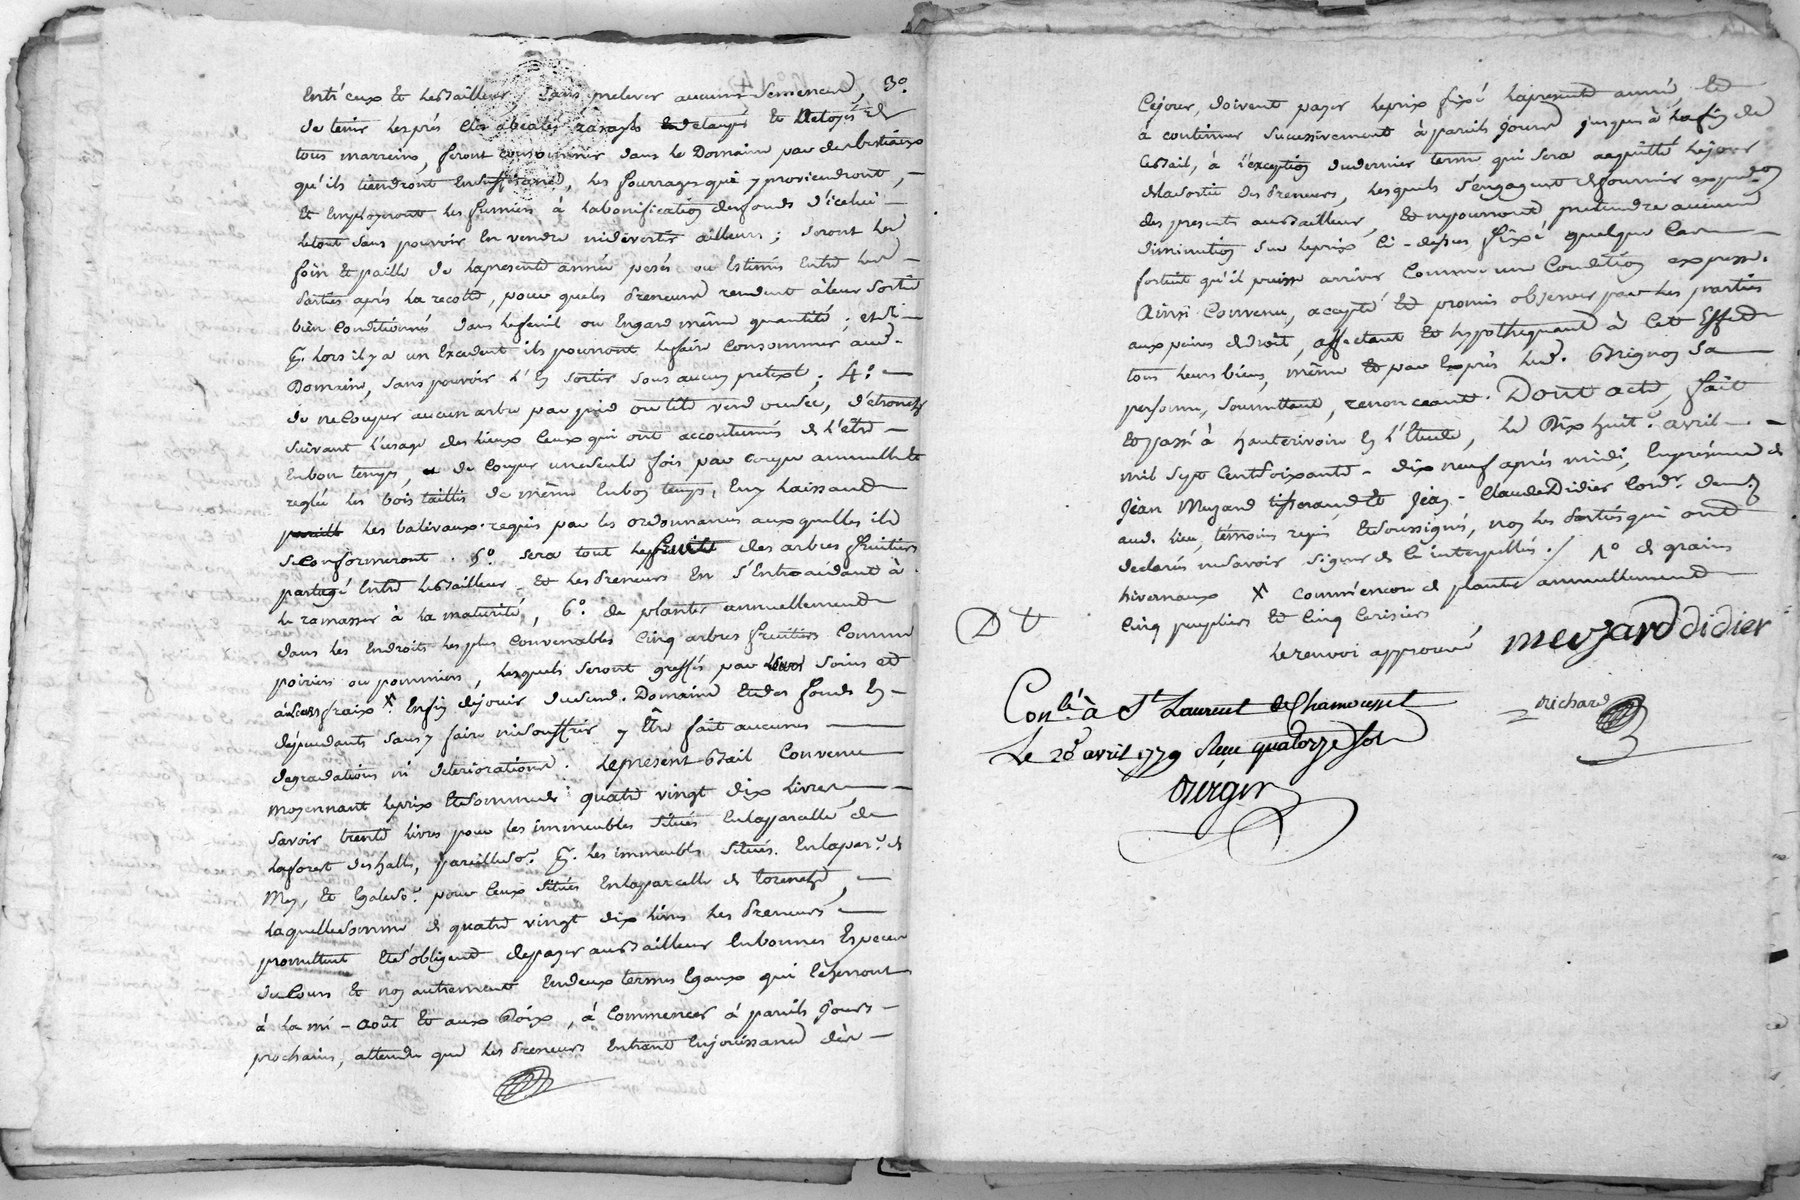 Entr'eux et le Bailleur, sans prelever aucune Semence, 3.o
de tenir les prés Clos abealés razayés et Netoyés de
tous marreins, feront consommer dans le Domaine par des bestiaux
qu'ils tiendront En suffisance, les fourrages qui y proviendront,
Et Employeront les fumiers à la bonification des fonds d'icelui
le tout sans pouvoir En vendre ni divertir ailleurs ; seront les
foin Et paille de la presente année pesés ou Estimés Entre les
Parties après la recolte, pour que les Preneurs rendent à leur Sortie
bien Conditionnés dans le fenil ou Engard même quantité ; et si
lors il y a un Excedent ils pourront le faire Consommer aud.
Domaine, sans pouvoir l'En Sortir sous aucun pretexte ; 4.o
de ne Couper aucun arbre par pied ou tête verd ou sec, d'étroncher
suivant l'usage des lieux Ceux qui ont accoutumés de l'être
En bon temps, de Couper une seule fois par Coupe annuelle Et
reglée les bois taillis de même En bon temps, En y laissant
les balivaux requis par les ordonnances auxquelles ils
se Conformeront. 5.o sera tout le fruit des arbres fruitiers
partagé Entre le Bailleur Et les Preneurs En s'Entreaidant à
le ramasser à la maturité, 6.o de planter annuellement
dans les Endroits les plus Convenables Cinq arbres fruitiers Comme
poiriers ou pommiers, lesquels seront greffés par leurs soins et
à leurs fraix X. Enfin de jouir dudit. Domaine Et des fonds En
dépendants sans y faire ni souffrir y Etre fait aucunes
degradations ni deteriorations. le present Bail Convenu
moyennant le prix Et somme de quatre vingt dix livres,
savoir trente livres pour les immeubles situés En la parcelle de
la forest des halles, pareille so.e les immeubles situés En la par.e de
Mey, Et Egale so.e pour Ceux situés En la parcelle de
laquelle somme de quatre vingt dix livres les Preneurs
promettent Et s'obligent de payer au Bailleur En bonnes Especes
du Cours Et non autrement En deux termes Egaux qui Echerront
à la mi-août Et aux Roix, à Commencer à pareils Jours
prochains, attendu que les Preneurs Entrent En joüissance dès
Ce jour, doivent payer le prix fixé la presente année, Et
à continuer successivement à pareils Jours jusques à la fin de
Ce Bail, à l'exception du dernier terme qui sera acquitté le jour
de la Sortie des Preneurs, lesquels s'engagent de fournir
des presents au Bailleur, Et ne pourront, pretendre aucune
diminution sur le prix Ci-dessus fixé quelque Cas
fortuit qu'il puisse arriver Comme une Condition expresse.
Ainsi Convenu, accepté Et promis observer par les parties
aux peines de droit, affectant Et hypothequant à Cet Effet
tous leurs biens, même Et par Exprès led. Brignon sa
personne, soumettant, renonceant. Dont acte, fait
Et passé à hauterivoire En l'Etude, le Dix huit.e avril
mil sept Cent soixante-dix neuf après midi, En présence de
Jean Meyzard tisserand Et Jean-Claude Didier Cord.r dem.t
aud. lieu, témoins requis Et soussignés, non les Parties qui ont
declarés ne savoir signer de Ce interpellés. / 1.o de grains
hivernaux X Commencer de planter annuellement
Cinq peupliers Et Cinq Cerisiers
le renvoi approuvé
meyzard didier
Richard
Con.lé à St Laurent de Chamousset
Le 20 avril 1779 Reçu quatorze sols
Berger